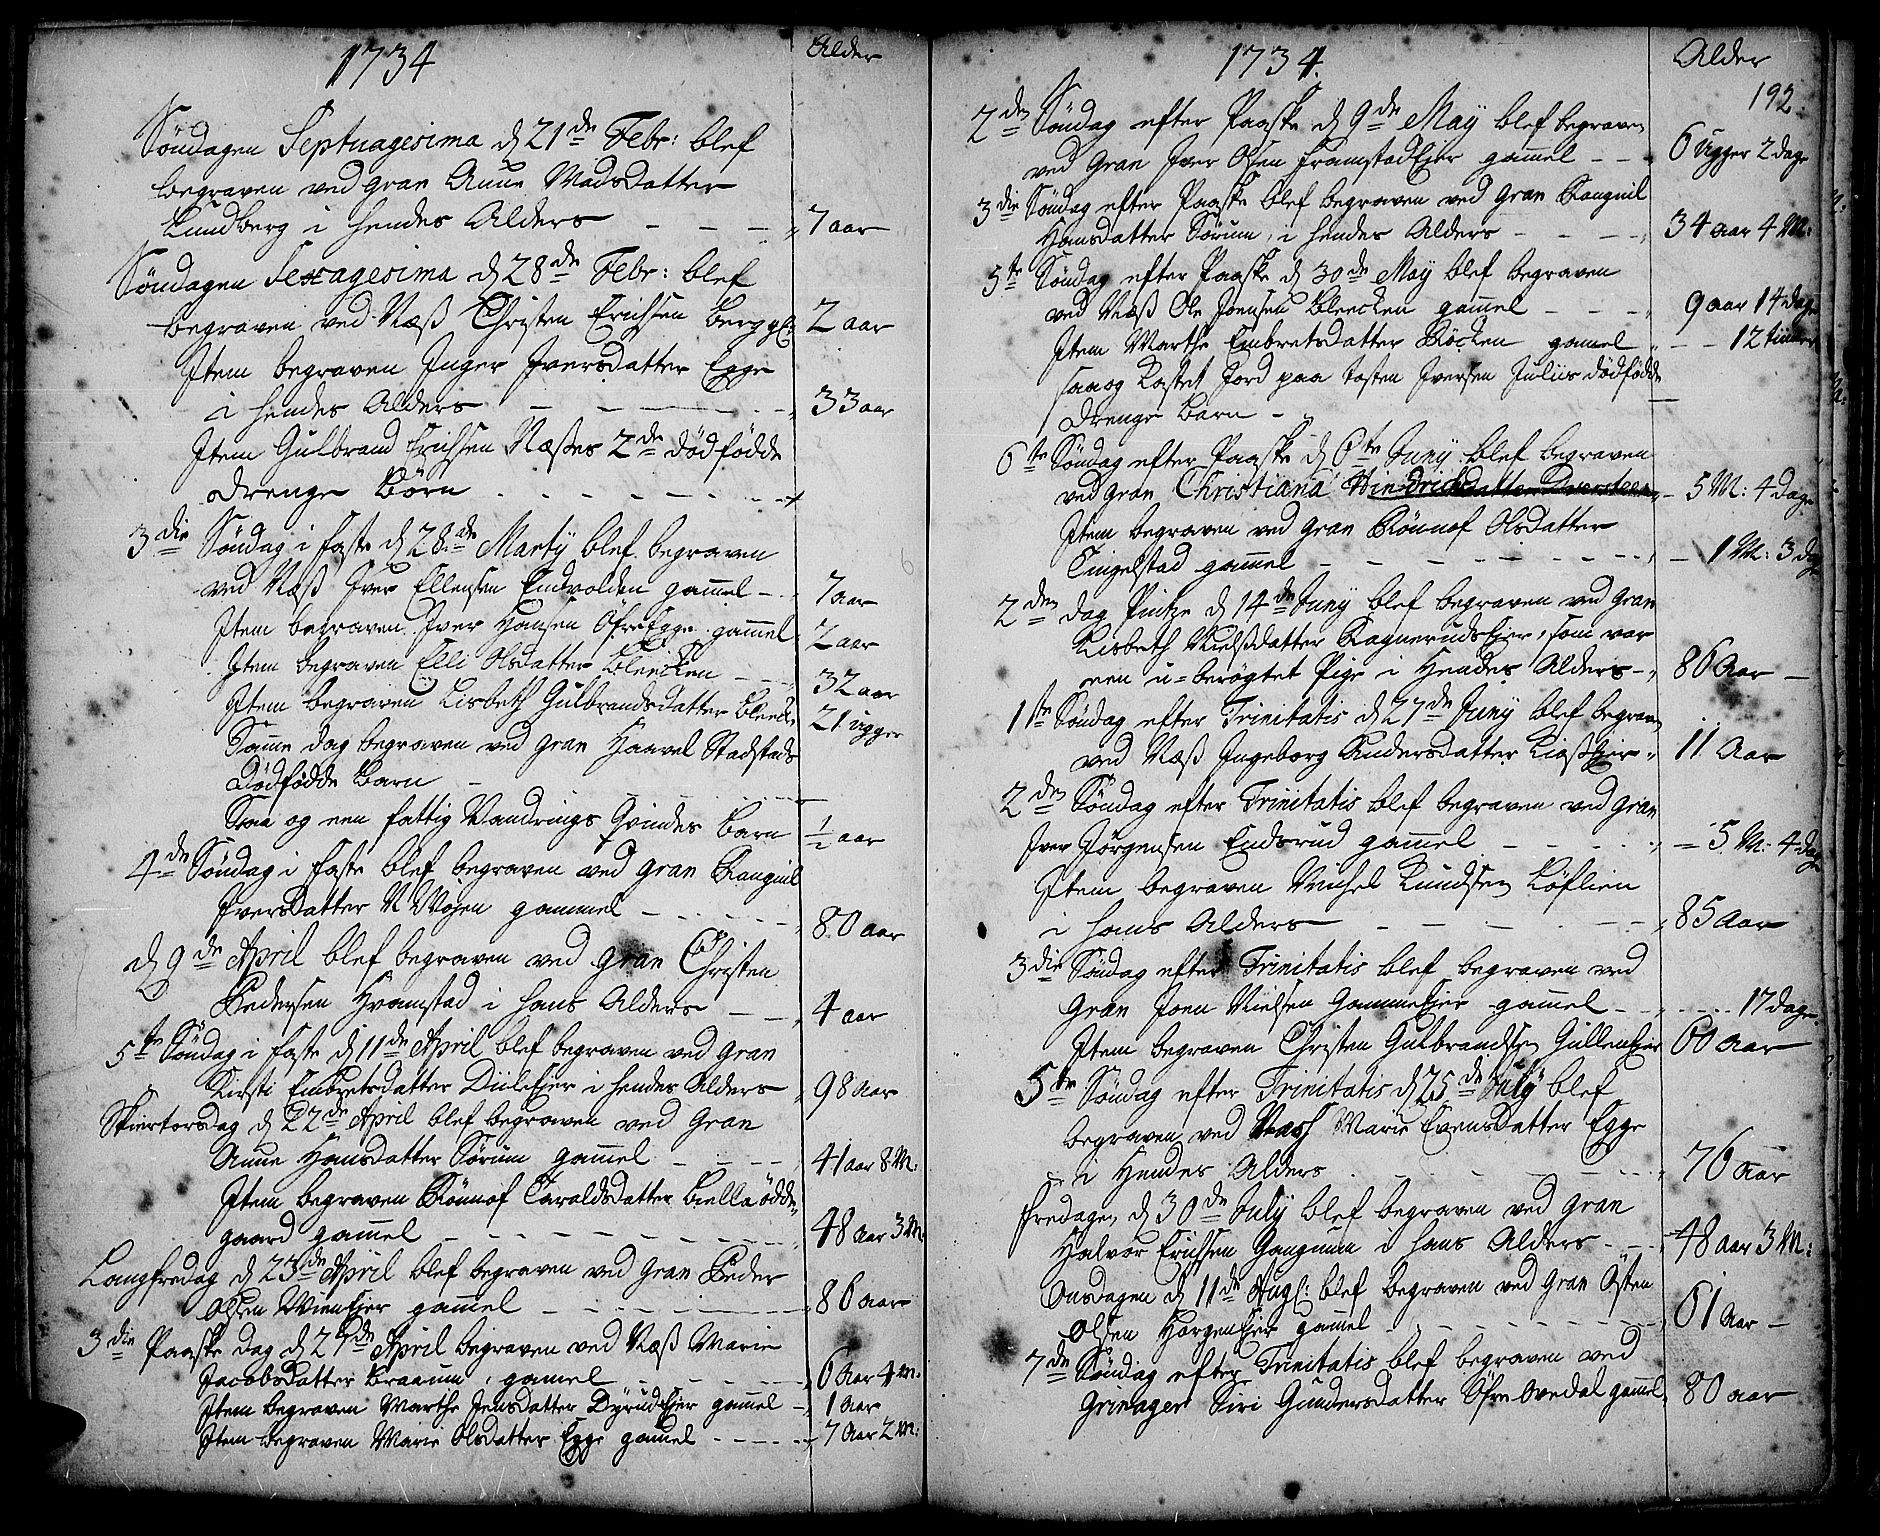 1734
Alder
Søndagen Septuagesima d 21de Febr: blef
begraven ved Gran Anne Madsdatter
Lundberg i hendes Alders - - - 7 aar
Søndagen Sexagesima d 28de Febr: blef
begraven ved Næß Christen Erichsen Berg gl: 2 aar
Item begraven Inger Iversdatter Egge
i hendes Alders - - - 33 aar
Item Gulbrand Erichsen Næßes 2de dødfødde
drenge Børn - - -
3die Søndag i faste d 28de Marty blef begraven
ved Næß Iver Ellensen Endvolden gamel - 7 aar
Item begraven Iver Hansen Øfre Egge gamel 2 aar
Item begraven Elli Olsdatter Bleecken - - 32 aar
Item begraven Lisbeth Gulbrandsdatter Bleeck: 21 ugger
Samme dag begraven ved Gran Haavel Stadstads
Dødfødde Barn -
Saa og een fattig Vandrings Qvindes Barn 1/2 aar
4de Søndag i faste blef begraven ved Gran Rangnil
Iversdatter N Vøjen gammel - - - 80 aar
d 9de April blef begraven ved Gran Christen
Pedersen Framstad i hans Alders - - 4 aar
5te Søndag i faste d 11de April blef begraven ved Gran
Kirsti Embretsdatter Diilejer i hendes Alders 98 Aar
Skiertorsdag d 22de April blef begraven ved Gran
Anne Hansdatter Sørum gamel - - - 41 aar 8 M:
Item begraven Rønnof Taraldsdatter Biella ødde-
gaard gamel - - - 48 Aar 3 M:
Langfredag d 23de April blef begraven ved Gran Peder
Olsen Vienejer gamel - - - 86 aar
3die Paaske dag d 27de April begraven ved Næß Marie
Jacobsdatter Braarum, gamel - - - 6 Aar 4 M:
Item begraven Marthe Jensdatter Dyrudejer gamel - 1 Aar
Item begraven Marie Olsdatter Egge gamel - - - 7 Aar 2 M:
1734.
Alder
192.
2den Søndag efter Paaske d 9de May blef begraven
ved Gran Iver Olsen Framstadejer gamel - - 6 ugger 2 dage
3die Søndag efter Paaske blef begraven ved Gran Rangnil
Hansdatter Sørum, i hendes Alders - - - 34 aar 4 M:
5te Søndag efter Paaske d 30de May blef begraven
ved Næß Ole Joensen Bleecken gamel - - - 9 aar 14 dage
Item Marthe Embretsdatter Røcken gamel - - 12 tiimer
saa og kastet Jord paa Tosten Iversen Juliis dødfødde
drenge Barn -
6te Søndag efter Paaske d 6te Juny blef begraven
ved Gran Christiana Hendrichsdatter - 5 M: 4 dage
Item begraven ved Gran Rønnof Olsdatter
Tingelstad gamel - - - 1 M: 3 dag
2den dag Pintze d 14de Juny blef begraven ved Gran
Lisbeth Nielsdatter Ragnerudsejer, som var
een u-berøgtet Pige i Hendes Alders - 86 Aar -
1te Søndag efter Trinitatis d 27de Juny blef begraven
ved Næß Ingeborg Andersdatter 11 Aar
2den Søndag efter Trinitatis blef begraven ved Gran
Iver Jørgensen Endsrud gamel - - - 5 M: 4 dage
Item begraven Michel Knudsen Løflien
i hans Alders - - - 85 Aar
3die Søndag efter Trinitatis blef begraven ved
Gran Joen Nielsen Gammeejer gamel - - - 17 dage.
Item begraven Christen Gulbrandsen Gullenejer 60 aar
5te Søndag efter Trinitatis d 25de July blef
begraven ved Næss Marie Evensdatter Egge
i Hendes Alders - - - 76 aar
Fredagen d 30de July blef begraven ved Gran
Halvor Erichsen Gangnum i hans Alders - - 48 aar 3 M:
Onsdagen d 11de Aug: blef begraven ved Gran Østen
Olsen Horgenejer gamel - - - 61 Aar -
7de Søndag efter Trinitatis blef begraven ved
Grinager Siri Gundersdatter Øfre Ovedal gamel 80 aar